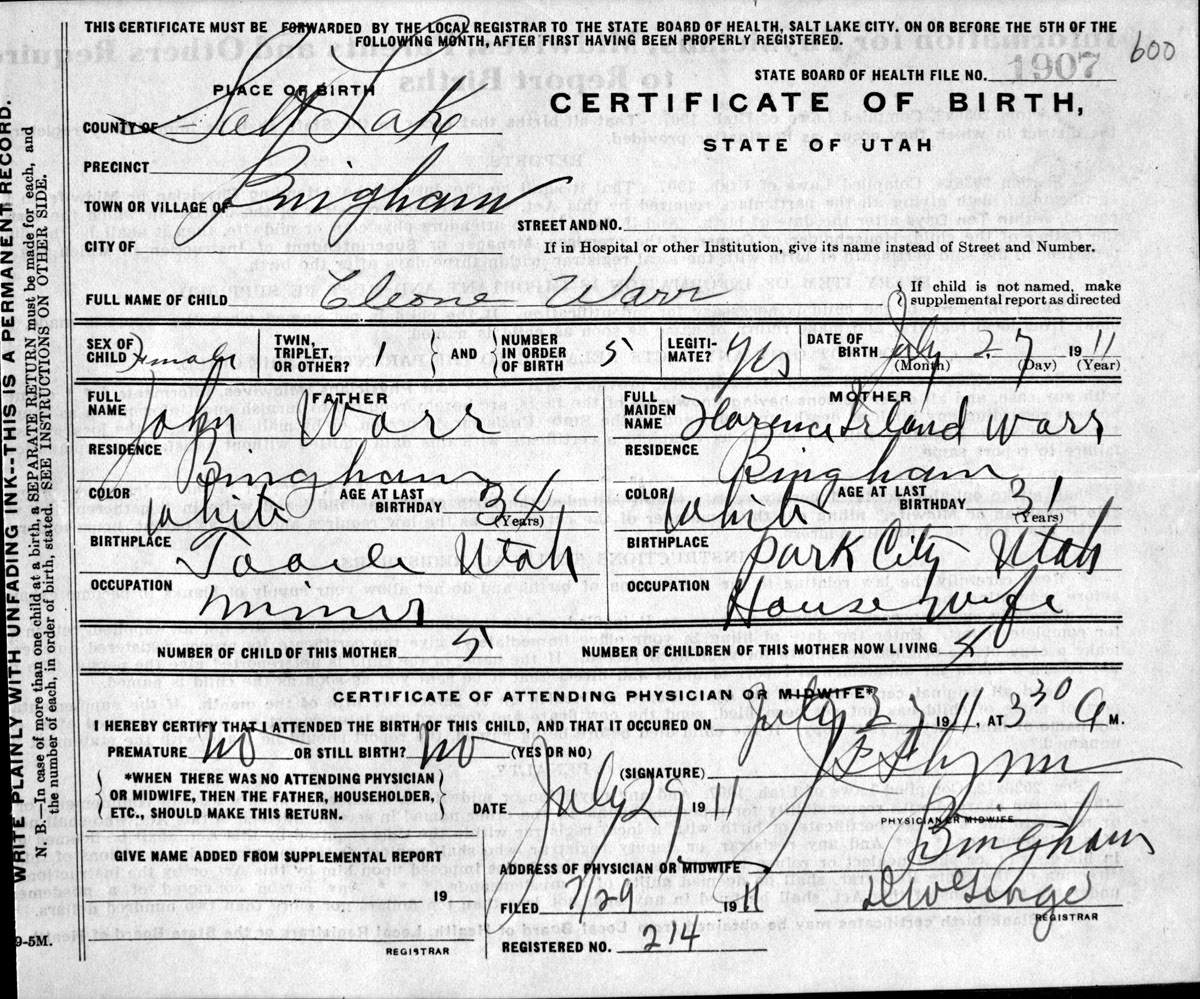 THIS CERTIFICATE MUST BE FORWARDED BY THE LOCAL REGISTRAR TO THE STATE BOARD OF HEALTH, SALT LAKE CITY, ON OR BEFORE THE 5TH OF THE
FOLLOWING MONTH, AFTER FIRST HAVING BEEN PROPERLY REGISTERED
600
STATE BOARD OF HEALTH FILE NO. 1907
PLACE OF BIRTH
CERTIFICATE OF BIRTH,
STATE OF UTAH
COUNTY OF Salt Lake
PRECINCT
TOWN OR VILLAGE OF Bingham
STREET AND NO.
CITY OF
If in Hospital or other Institution, give its name instead of Street and Number.
FULL NAME OF CHILD Cleone Warr
If child is not named, make
supplemental report as directed
SEX OF CHILD Female
TWIN, TRIPLET, OR OTHER? 1 AND NUMBER IN ORDER OF BIRTH 5
LEGITIMATE? Yes
DATE OF BIRTH July 27 1911
(Month) (Day) (Year)
FATHER
FULL NAME John Warr
MOTHER
FULL MAIDEN NAME Florence Irland Warr
RESIDENCE Bingham
RESIDENCE Bingham
COLOR White AGE AT LAST BIRTHDAY 34 (Years)
COLOR White AGE AT LAST BIRTHDAY 31 (Years)
BIRTHPLACE Tooele Utah
BIRTHPLACE Park City Utah
OCCUPATION miner
OCCUPATION House wife
NUMBER OF CHILD OF THIS MOTHER 5
NUMBER OF CHILDREN OF THIS MOTHER NOW LIVING
CERTIFICATE OF ATTENDING PHYSICIAN OR MIDWIFE*
I HEREBY CERTIFY THAT I ATTENDED THE BIRTH OF THIS CHILD, AND THAT IT OCCURED ON July 27 1911, AT 3 30 A M.
PREMATURE No OR STILL BIRTH? No (YES OR NO)
(SIGNATURE)
*WHEN THERE WAS NO ATTENDING PHYSICIAN
OR MIDWIFE, THEN THE FATHER, HOUSEHOLDER,
ETC., SHOULD MAKE THIS RETURN.
DATE July 29 1911
PHYSICIAN OR MIDWIFE
GIVE NAME ADDED FROM SUPPLEMENTAL REPORT
19
REGISTRAR
ADDRESS OF PHYSICIAN OR MIDWIFE Bingham
FILED 7/29 1911
REGISTRAR
REGISTERED NO. 214
WRITE PLAINLY WITH UNFADING INK--THIS IS A PERMANENT RECORD.
N. B.—In case of more than one child at a birth, a SEPARATE RETURN must be made for each, and
the number of each, in order of birth, stated. SEE INSTRUCTIONS ON OTHER SIDE.
9-5M.